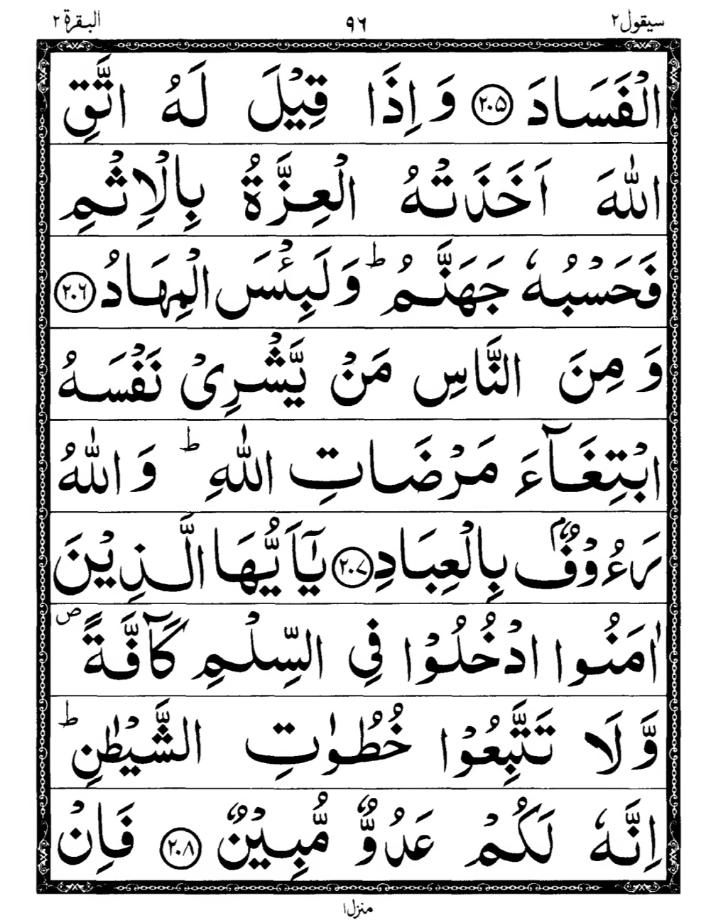 سيقول٢ ٩٦ البقرة ٢
الْفَسَادَ ﴿٢٠٥﴾ وَ اِذَا قِيْلَ لَهُ اتَّقِ
اللّٰهَ اَخَذَتْهُ الْعِزَّةُ بِالْاِثْمِ
فَحَسْبُهٗ جَهَنَّمُ ؕ وَلَبِئْسَ الْمِهَادُ ﴿٢٠٦﴾
وَ مِنَ النَّاسِ مَنْ يَّشْرِيْ نَفْسَهُ
ابْتِغَآءَ مَرْضَاتِ اللّٰهِ ؕ وَ اللّٰهُ
رَءُوْفٌۢ بِالْعِبَادِ ﴿٢٠٧﴾ يٰٓاَيُّهَا الَّذِيْنَ
اٰمَنُوا ادْخُلُوْا فِي السِّلْمِ كَآفَّةً ۪
وَّلَا تَتَّبِعُوْا خُطُوٰتِ الشَّيْطٰنِ ؕ
اِنَّهٗ لَكُمْ عَدُوٌّ مُّبِيْنٌ ﴿٢٠٨﴾ فَاِنْ
منزل١